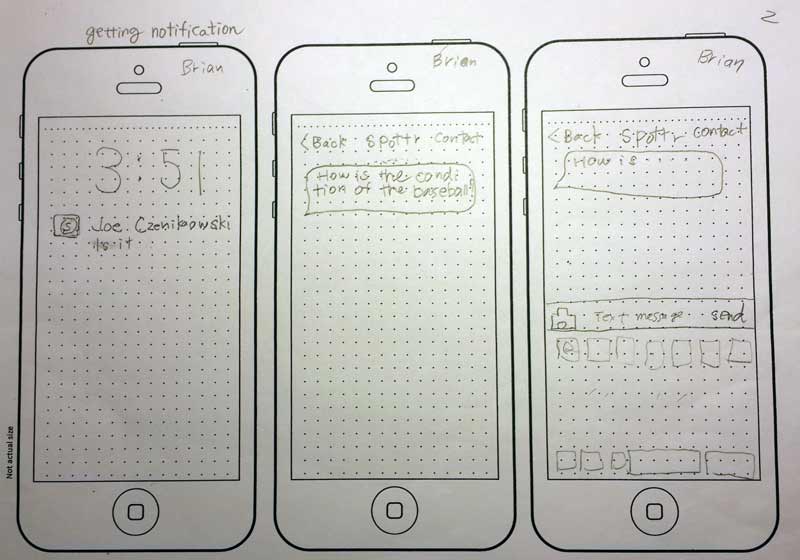 2
getting notification
Brian
3:51
S Joe Czenikowski
Is it
Brian
<Back Spottr Contact
How is the condi
tion of the baseball?
Brian
<Back Spottr Contact
How is ...
Text message send
Not actual size